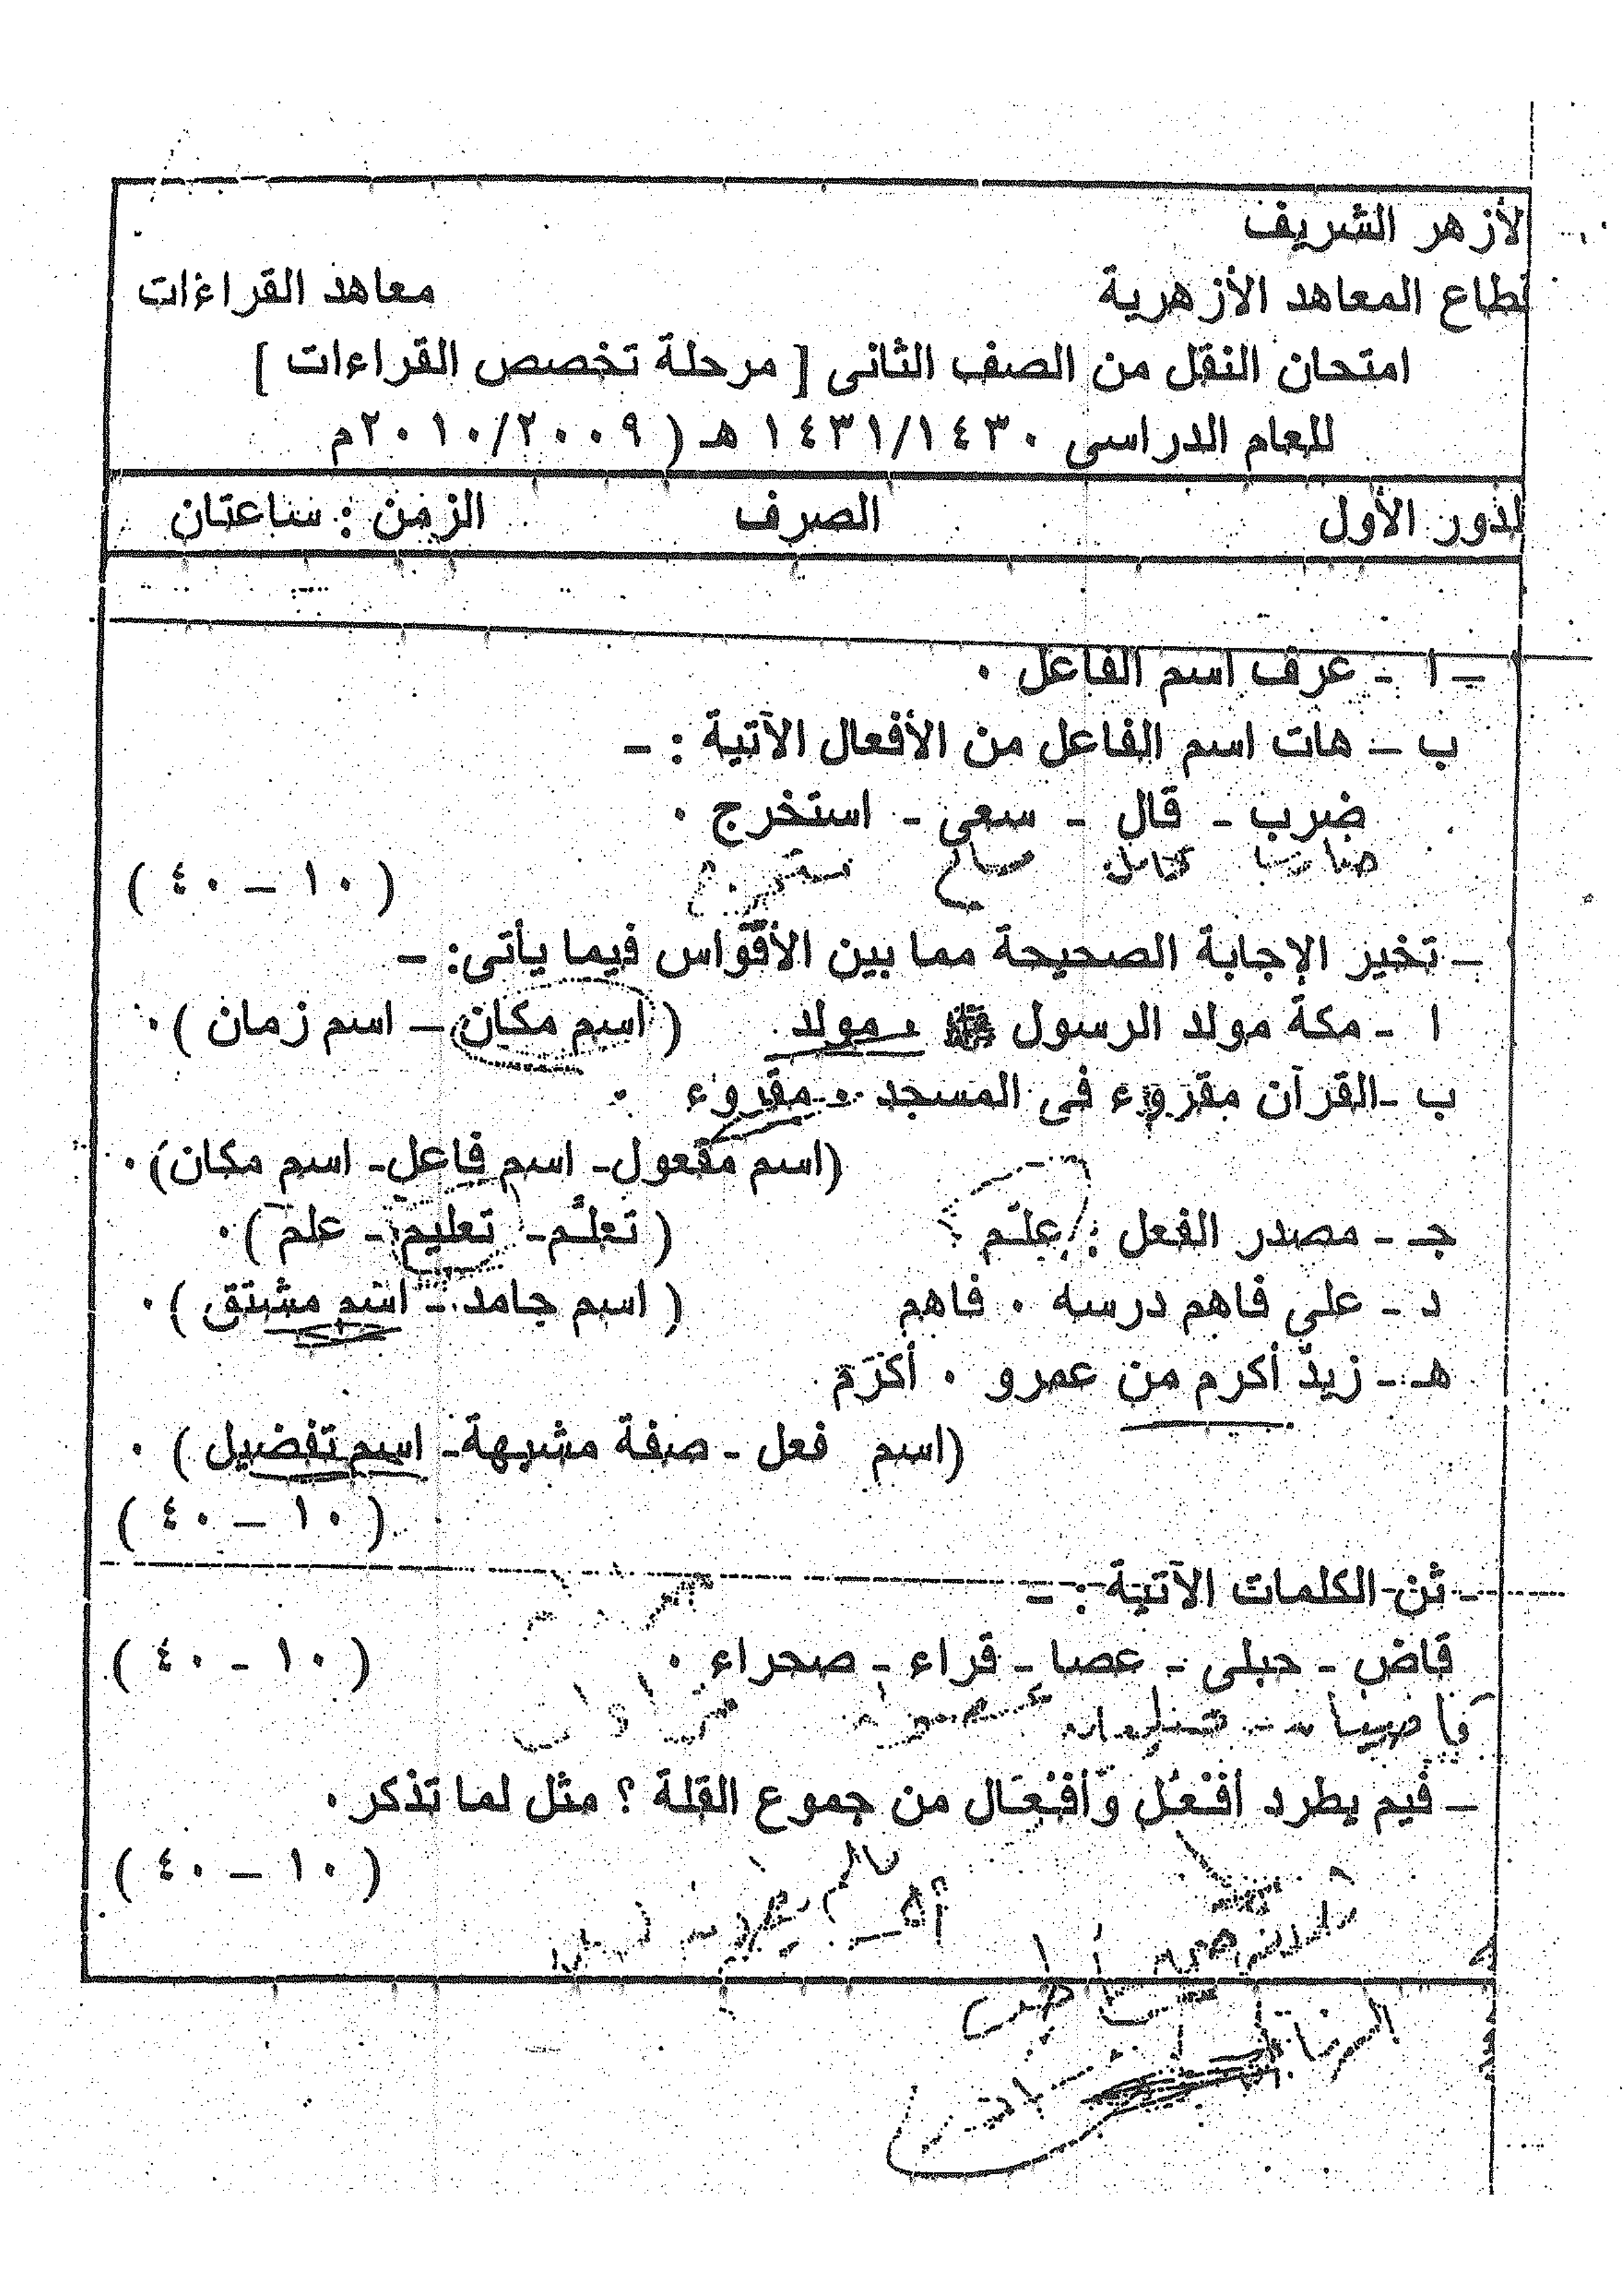 لأزهر الشريف
نطاع المعاهد الأزهرية معاهد القراءات
امتحان النقل من الصف الثانى [ مرحلة تخصص القراءات ]
للعام الدراسى ١٤٣١/١٤٣٠ هـ ( ٢٠١٠/٢٠٠٩م
لدور الأول الصرف الزمن : ساعتان
١ – ا - عرف اسم الفاعل ٠
ب – هات اسم الفاعل من الأفعال الآتية : –
ضرب - قال - سعى - استخرج ٠
ضارب قائل ساع مستخرج
( ١٠ – ٤٠ )
– تخير الإجابة الصحيحة مما بين الأقواس فيما يأتى: –
ا - مكة مولد الرسول ﷺ ، مولد ( اسم مكان – اسم زمان ) ٠
ب -القرآن مقروء فى المسجد ٠ مقروء ٠
(اسم مفعول- اسم فاعل- اسم مكان) ٠
جـ - مصدر الفعل : علّم ( تعلّم- تعليم - علم ) ٠
د - على فاهم درسه ٠ فاهم ( اسم جامد - اسم مشتق ) ٠
هـ - زيدٌ أكرم من عمرو ٠ أكرَم
(اسم فعل - صفة مشبهة- اسم تفضيل ) ٠
( ١٠ – ٤٠ )
- ثن الكلمات الآتية : –
قاض - حبلى - عصا - قراء - صحراء ٠ ( ١٠ - ٤٠ )
قاضيان
– فيم يطرد أفْعُل وأفْعَال من جموع القلة ؟ مثل لما تذكر ٠
( ١٠ – ٤٠ )